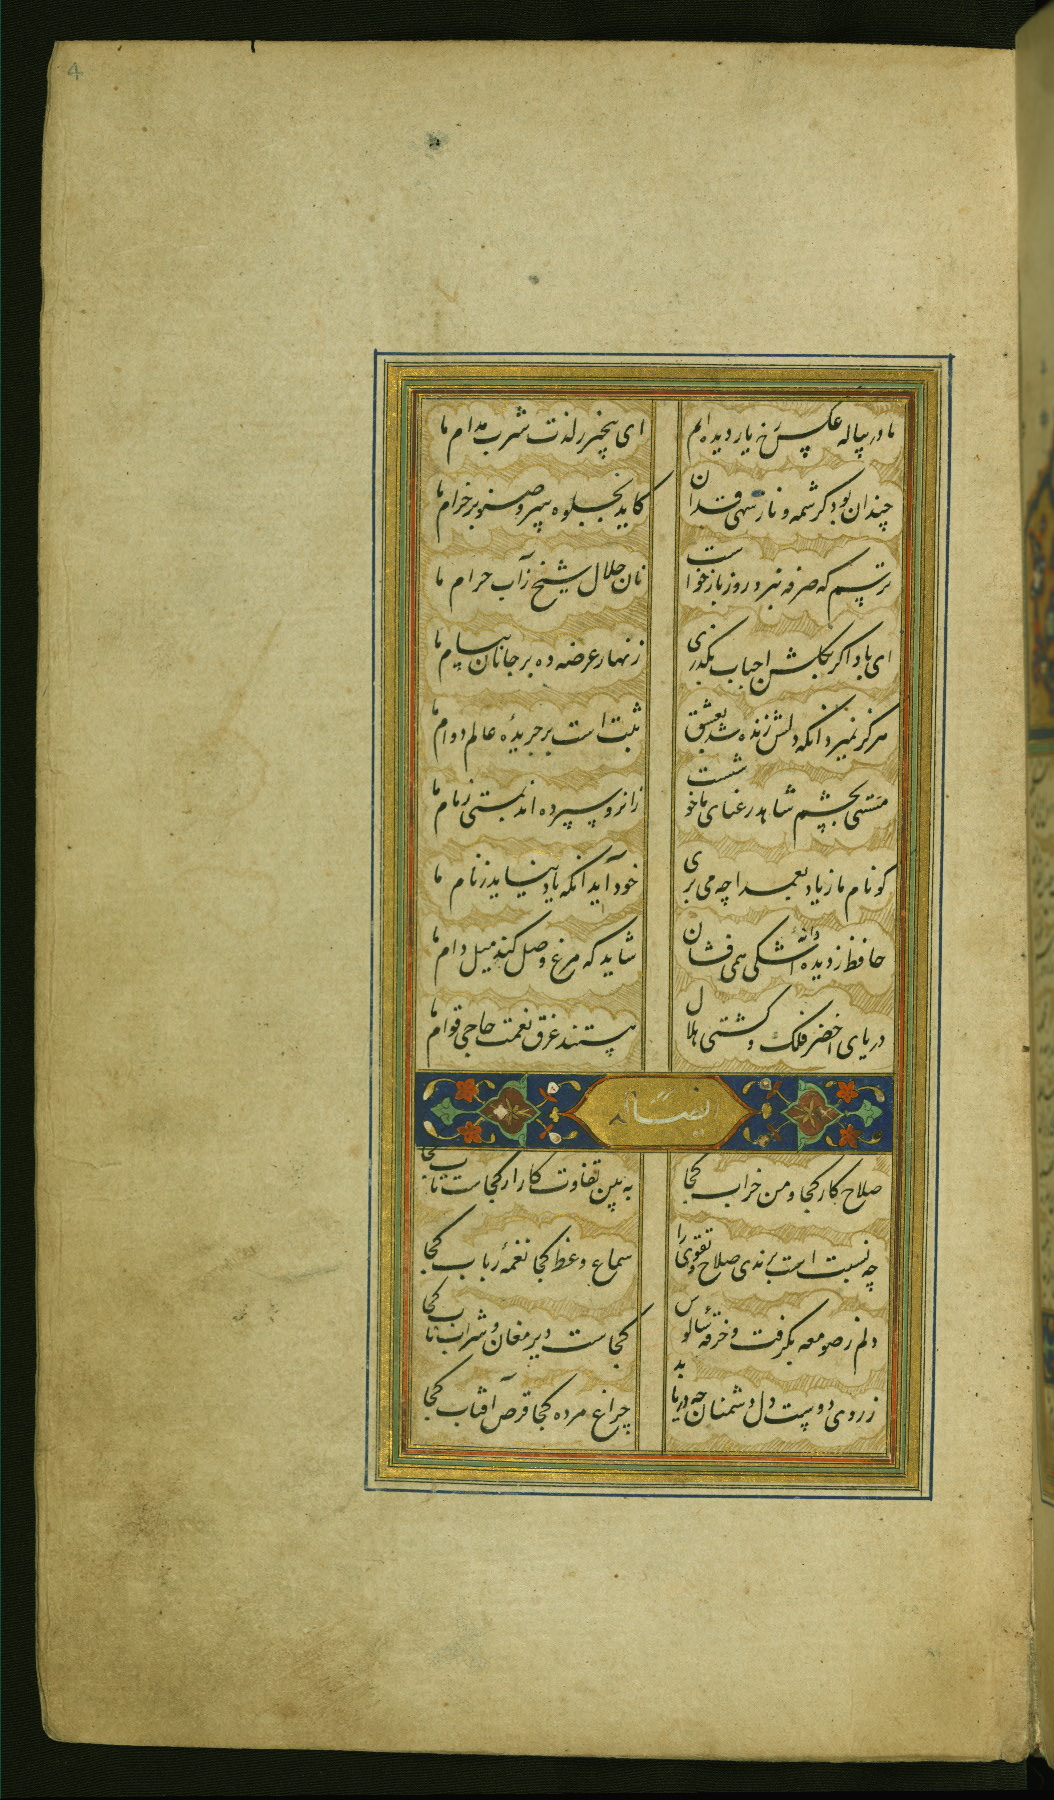 4
ما در پیاله عکس رخ یار دیده ایم
ای بیخبر ز لذت شرب مدام ما
چندان بود کرشمه و ناز سهی قدان
کاید بجلوه سرو صنوبر خرام ما
ترسم که صرفه نبرد روز باز خواست
نان حلال شیخ ز آب حرام ما
ای باد اگر بگلشن احباب بگذری
زنهار عرضه ده بر جانان پیام ما
هرگز نمیرد انکه دلش زنده شد بعشق
ثبت است بر جریدهٔ عالم دوام ما
مستی بچشم شاهد رعنای ما خوشست
زانرو سپرده اند بمستی زمام ما
گو نام ما ز یاد بعمدا چه می بری
خود آید آنکه یاد نیاید ز نام ما
حافظ ز دیده دانهٔ اشکی همی فشان
شاید که مرغ وصل کند میل دام ما
دریای اخضر فلک و کشتی هلال
هستند غرق نعمت حاجی قوام ما
ایضا له
صلاح کار کجا و من خراب کجا
به بین تفاوت کار از کجاست تا بکجا
چه نسبت است برندی صلاح و تقوی را
سماع وعظ کجا نغمهٔ رباب کجا
دلم ز صومعه بگرفت و خرقهٔ سالوس
کجاست دیر مغان و شراب ناب کجا
ز روی دوست دل دشمنان چه دریابد
چراغ مرده کجا قرص آفتاب کجا